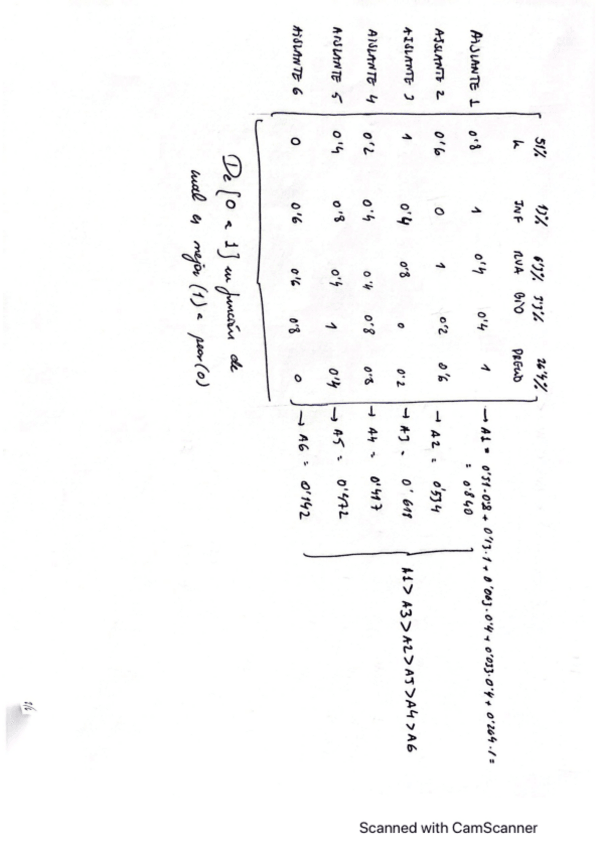 51% 13% 6'3% 3'3% 26'4%
K INF RVA BIO PRECIO
AISLANTE 1 0'8 1 0'4 0'4 1 → A1 = 0'51·0'8 + 0'13·1 + 0'063·0'4 + 0'033·0'4 + 0'264·1 =
= 0'840
AISLANTE 2 0'6 0 1 0'2 0'6 → A2 = 0'534
AISLANTE 3 1 0'4 0'8 0 0'2 → A3 = 0'618
AISLANTE 4 0'2 0'4 0'4 0'8 0'8 → A4 = 0'417
AISLANTE 5 0'4 0'8 0'4 1 0'4 → A5 = 0'472
AISLANTE 6 0 0'6 0'6 0'8 0 → A6 = 0'142
A1 > A3 > A2 > A5 > A4 > A6
De [0 a 1] en función de
cual es mejor (1) a peor (0)
Scanned with CamScanner